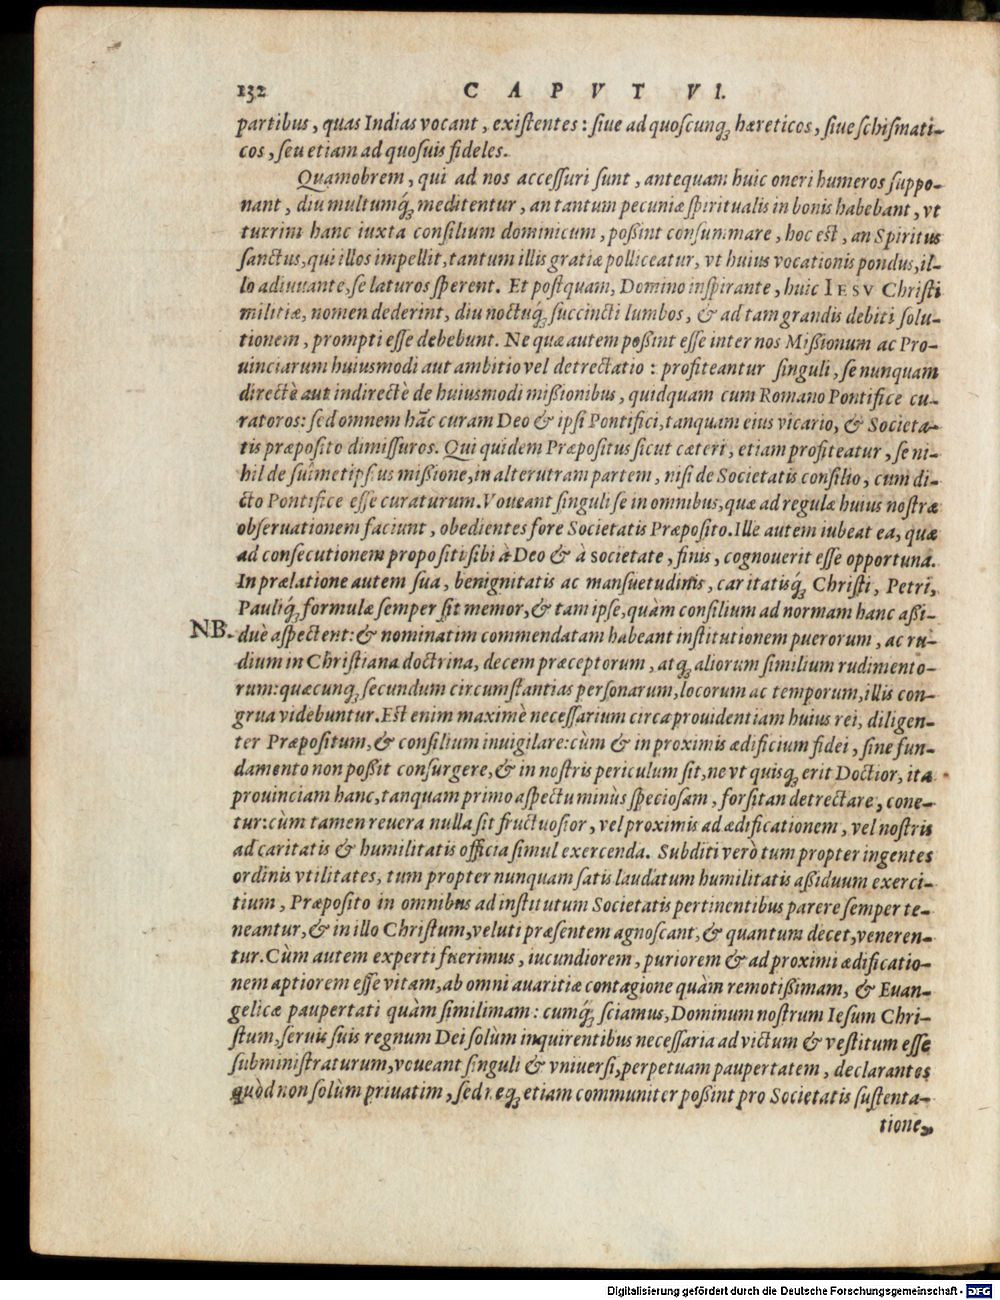 132 CAPVT VI.
partibus, quas Indias vocant, existentes: siue ad quoscunq; hæreticos, siue schismati-
cos, seu etiam ad quosuis fideles.
Quamobrem, qui ad nos accessuri sunt, antequam huic oneri humeros suppo-
nant, diu multumq́; meditentur, an tantum pecuniæ spiritualis in bonis habebant, vt
turrim hanc iuxta consilium dominicum, poßint consummare, hoc est, an Spiritus
sanctus, qui illos impellit, tantum illis gratiæ polliceatur, vt huius vocationis pondus, il-
lo adiuuante, se laturos sperent. Et postquam, Domino inspirante, huic IESV Christi
militiæ, nomen dederint, diu noctuq́; succincti lumbos, & ad tam grandis debiti solu-
tionem, prompti esse debebunt. Ne quæ autem poßint esse inter nos Mißionum ac Pro-
uinciarum huiusmodi aut ambitio vel detrectatio: profiteantur singuli, se nunquam
directè aut indirectè de huiusmodi mißionibus, quidquam cum Romano Pontifice cu-
raturos: sed omnem hãc curam Deo & ipsi Pontifici, tanquam eius vicario, & Societa-
tis præposito dimissuros. Qui quidem Præpositus sicut cæteri, etiam profiteatur, se ni-
hil de suimetipsius mißione, in alterutram partem, nisi de Societatis consilio, cum di-
cto Pontifice esse curaturum. Voueant singuli se in omnibus, quæ ad regulæ huius nostræ
obseruationem faciunt, obedientes fore Societatis Præposito. Ille autem iubeat ea, quæ
ad consecutionem propositi sibi à Deo & à societate, finis, cognouerit esse opportuna.
In prælatione autem sua, benignitatis ac mansuetudinis, caritatisq́; Christi, Petri,
Pauliq́; formulæ semper sit memor, & tam ipse, quàm consilium ad normam hanc aßi-
NB. duè aspectent: & nominatim commendatam habeant institutionem puerorum, ac ru-
dium in Christiana doctrina, decem præceptorum, atq; aliorum similium rudimento-
rum: quæcunq; secundum circumstantias personarum, locorum ac temporum, illis con-
grua videbuntur. Est enim maximè necessarium circa prouidentiam huius rei, diligen-
ter Præpositum, & consilium inuigilare: cùm & in proximis ædificium fidei, sine fun-
damento non poßit consurgere, & in nostris periculum sit, ne vt quisq; erit Doctior, ita
prouinciam hanc, tanquam primo aspectu minùs speciosam, forsitan detrectare, cone-
tur: cùm tamen reuera nulla sit fructuosior, vel proximis ad ædificationem, vel nostris
ad caritatis & humilitatis officia simul exercenda. Subditi verò tum propter ingentes
ordinis vtilitates, tum propter nunquam satis laudatum humilitatis aßiduum exerci-
tium, Præposito in omnibus ad institutum Societatis pertinentibus parere semper te-
neantur, & in illo Christum, veluti præsentem agnoscant, & quantum decet, veneren-
tur. Cùm autem experti fuerimus, iucundiorem, puriorem & ad proximi ædificatio-
nem aptiorem esse vitam, ab omni auaritiæ contagione quàm remotißimam, & Euan-
gelicæ paupertati quàm simillimam: cumq́; sciamus, Dominum nostrum Iesum Chri-
stum, seruis suis regnum Dei solùm inquirentibus necessaria ad victum & vestitum esse
subministraturum, voueant singuli & vniuersi, perpetuam paupertatem, declarantes
quòd non solùm priuatim, sed neq; etiam communiter poßint pro Societatis sustenta-
tione,
Digitalisierung gefördert durch die Deutsche Forschungsgemeinschaft - DFG